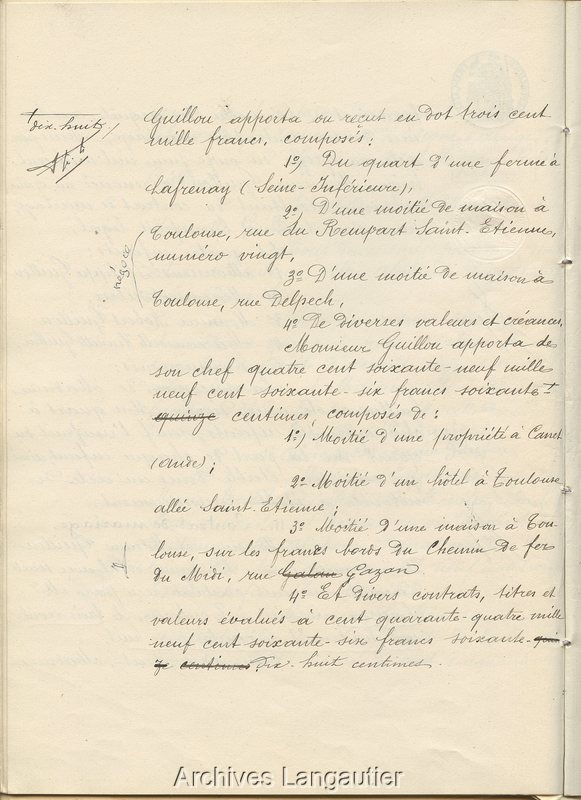 Guillou apporta ou reçut en dot trois cent
dix-huit
mille francs, composés :
1º) Du quart d'une ferme à
Lafrenay (Seine-Inférieure),
2º) D'une moitié de maison à
Toulouse, rue du Rempart Saint-Etienne,
numéro vingt,
négoce
3º D'une moitié de maison à
Toulouse, rue Delpech,
4º De diverses valeurs et créances,
Monsieur Guillou apporta de
son chef quatre cent soixante-neuf mille
neuf cent soixante-six francs soixante-
quinze centimes, composés de :
1º) Moitié d'une propriété à Canet
(Aude) ;
2º Moitié d'un hôtel à Toulouse
allée Saint-Etienne ;
3º Moitié d'une maison à Tou
louse, sur les francs bords du chemin de fer
du Midi, rue Galon Gazan
4º Et divers contrats, titres et
valeurs évalués à cent quarante-quatre mille
neuf cent soixante-six francs soixante-quin
ze centimes dix-huit centimes.
Archives Langautier